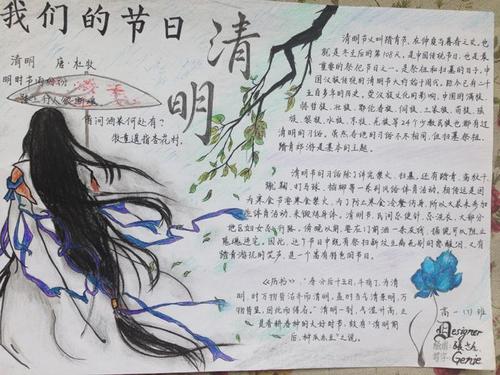 我们的节日
清明
清明 唐·杜牧
明时节雨纷纷
路上行人欲断魂
借问酒家何处有？
牧童遥指杏花村.
清明节又叫踏青节，在仲春与暮春之交，也
就是冬至后的第108天，是中国传统节日，也是最
重要的祭祀节日之一，是祭祖和扫墓的日子，中
国汉族传统的清明节大约始于周代，距今已有二千
五百多年的历史，受汉族文化的影响，中国的满族、
赫哲族、壮族、鄂伦春族、侗族、土家族、苗族、瑶
族、黎族、水族、京族、羌族等24个少数民族也都有过
清明的习俗，虽然各地习俗不尽相同，但扫墓祭祖、
踏青郊游是基本的主题。
清明节的习俗除了讲究禁火、扫墓，还有踏青、荡秋千、
蹴鞠、打马球、插柳等一系列风俗体育活动，相传这是因
为寒食节要寒食禁火，为了防止寒食冷餐伤身，所以大家来参加
一些体育活动，来锻炼身体。清明节，民间忌使针，忌洗衣，大部分
地区妇女忌行路，傍晚以前，要在门前洒一条灰线，据说可以阻止
鬼魂进宅，因此，这个节日中既有祭扫新坟生离死别的悲酸泪，又有
踏青游玩的笑声，是一个富有特色的节日。
《历书》："春分后十五日，斗指丁，为清
明，时万物皆洁齐而清明，盖时当气清景明，万
物皆显，因此而得名。"清明一到，气温升高，正
是春耕春种的大好时节，故有"清明前
后，种瓜点豆"之说。
高一(1)班
Designer
Genie